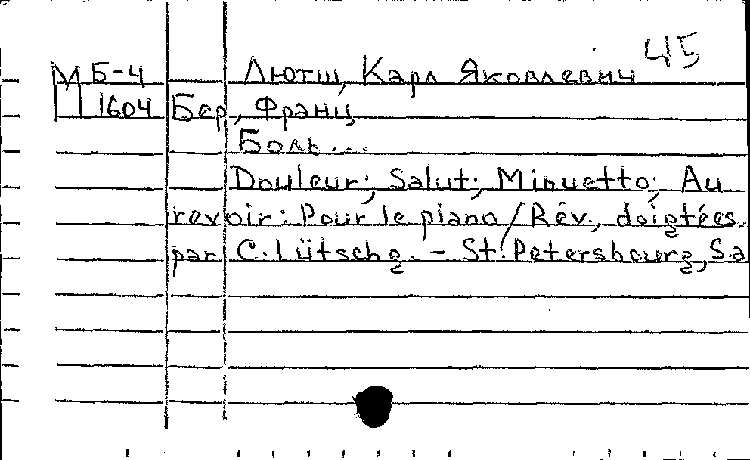 45
М Б-4 Лютш, Карл Яковлевич
1604 Бер, Франц
Боль...
Douleur; Salut; Minuetto; Au
revoir: Pour le piano / Rév., doigtées
par C. Lütschg. - St. Petersbourg, Sa